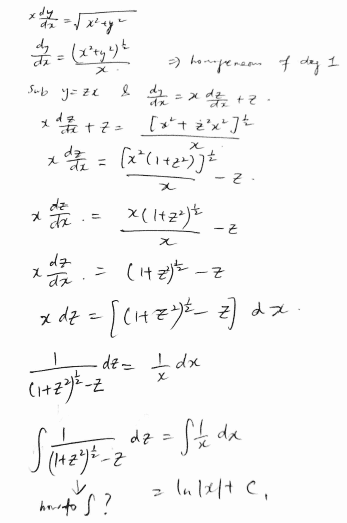 x dy/dx = √(x²+y²)
dy/dx = (x²+y²)^½ / x ⇒ homogeneous of deg 1
Sub y=zx & dy/dx = x dz/dx + z.
x dz/dx + z = [x²+z²x²]^½ / x
x dz/dx = [x²(1+z²)]^½ / x - z.
x dz/dx. = x(1+z²)^½ / x - z
x dz/dx. = (1+z²)^½ - z
x dz = [(1+z²)^½ - z] dx.
1/((1+z²)^½ - z) dz = 1/x dx
∫ 1/((1+z²)^½ - z) dz = ∫ 1/x dx
↓
how to ∫ ? = ln|x| + C₁